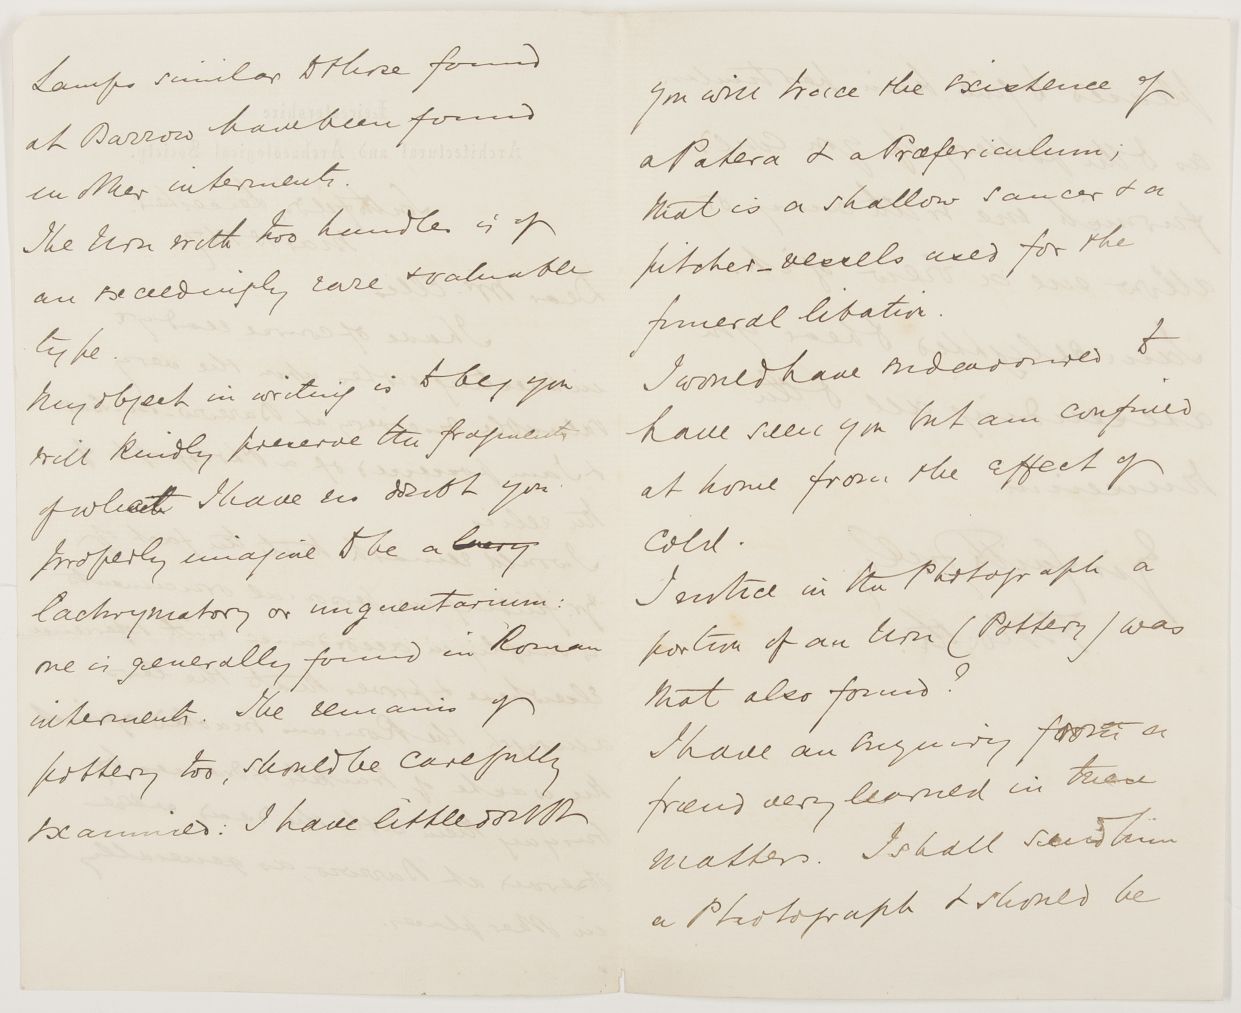 Lamps similar to those found
at Barrow have been found
in other interments.
The Urn with two handles is of
an exceedingly rare & valuable
type.
My object in writing is to beg you
will kindly preserve the fragments
of what I have no doubt you
properly imagine to be a
lachrymatory or unguentarium:
one is generally found in Roman
interments. The remains of
pottery too, should be carefully
examined: I have little doubt
you will trace the existence of
a Patera & a Præfericulum;
that is a shallow saucer & a
pitcher – vessels used for the
funeral libation.
I would have endeavoured to
have seen you but am confined
at home from the effect of
cold.
I notice in the Photograph a
portion of an Urn (Pottery) was
that also found?
I have an enquiry from a
friend very learned in these
matters. I shall send him
a Photograph & should be